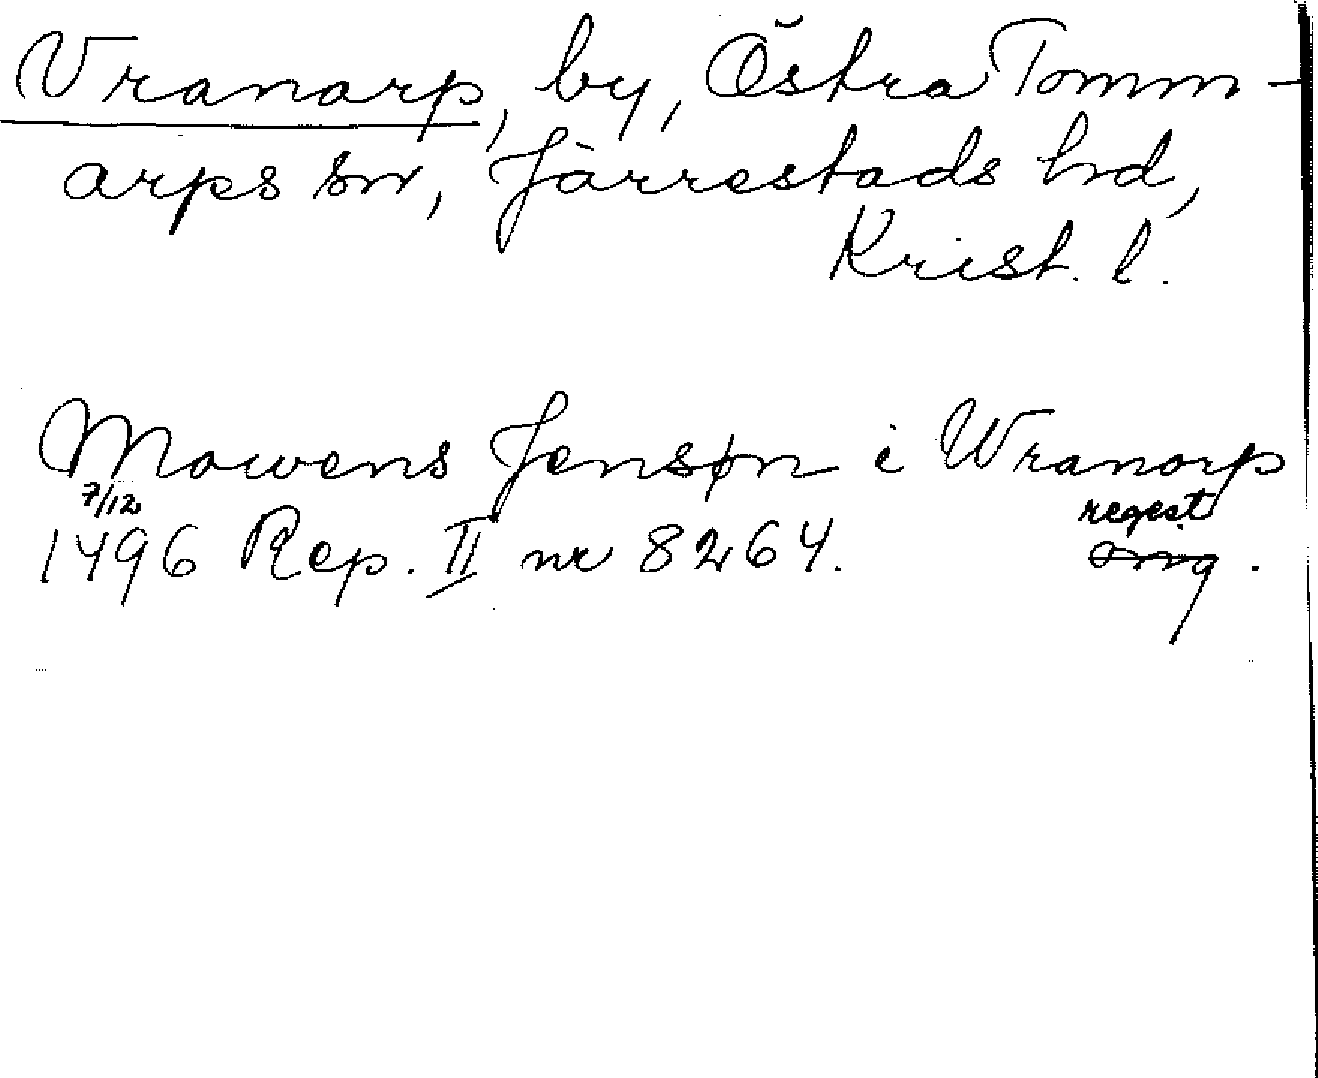 Vranarp, by, Östra Tomm-
arps sn, Järrestads hd,
Krist. l.
Mowens Jensøn i Wranorp
7/12 regest
1496 Rep. II nr 8264. omg.